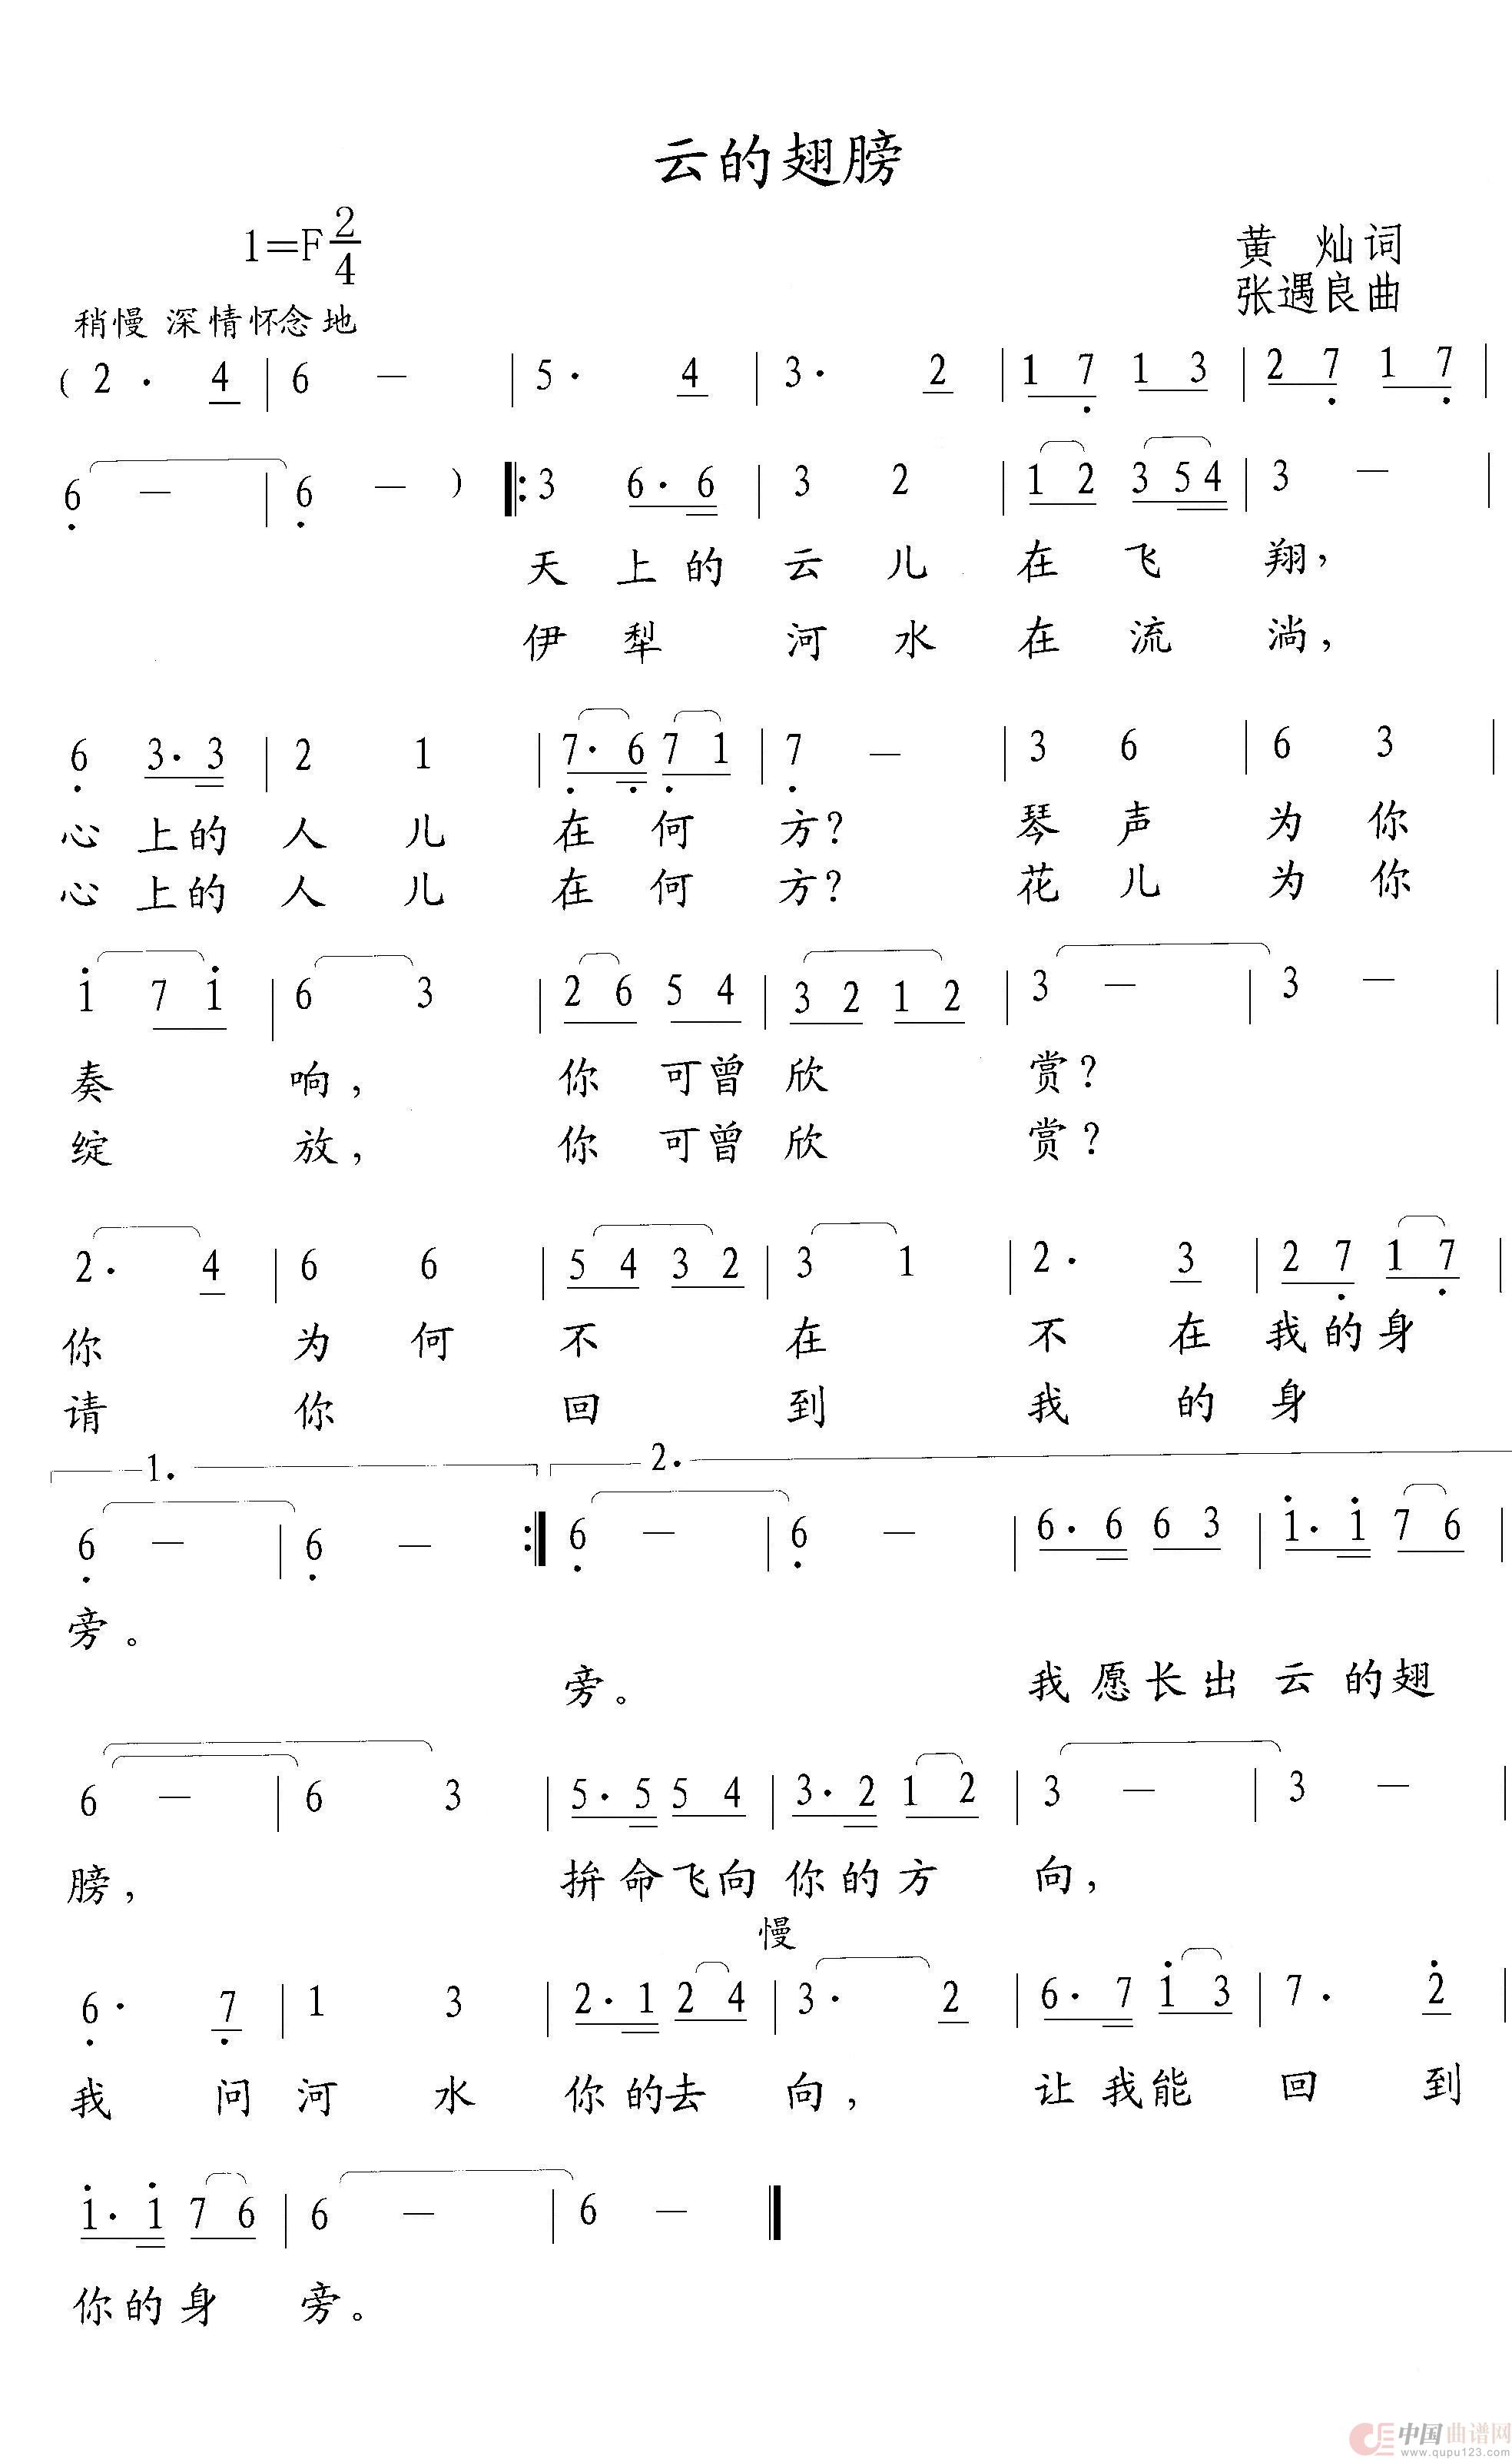 云的翅膀
1=F 2/4
黄 灿词
张遇良曲
稍慢 深情怀念地
( 2 · 4 | 6 — | 5 · 4 | 3 · 2 | 1 7 1 3 | 2 7 1 7 |
6 — | 6 — ) |: 3 6 · 6 | 3 2 | 1 2 3 5 4 | 3 — |
天 上 的 云 儿 在 飞 翔，
伊 犁 河 水 在 流 淌，
6 3 · 3 | 2 1 | 7 · 6 7 1 | 7 — | 3 6 | 6 3 |
心 上 的 人 儿 在 何 方？ 琴 声 为 你
心 上 的 人 儿 在 何 方？ 花 儿 为 你
1 7 1 | 6 3 | 2 6 5 4 | 3 2 1 2 | 3 — | 3 — |
奏 响， 你 可 曾 欣 赏？
绽 放， 你 可 曾 欣 赏？
2 · 4 | 6 6 | 5 4 3 2 | 3 1 | 2 · 3 | 2 7 1 7 |
你 为 何 不 在 不 在 我 的 身
请 你 回 到 我 的 身
1. 2.
6 — | 6 — :| 6 — | 6 — | 6 · 6 6 3 | 1 · 1 7 6 |
旁。
旁。 我 愿 长 出 云 的 翅
6 — | 6 3 | 5 · 5 5 4 | 3 · 2 1 2 | 3 — | 3 — |
膀， 拚 命 飞 向 你 的 方 向，
慢
6 · 7 | 1 3 | 2 · 1 2 4 | 3 · 2 | 6 · 7 1 3 | 7 · 2 |
我 问 河 水 你 的 去 向， 让 我 能 回 到
1 · 1 7 6 | 6 — | 6 — ‖
你 的 身 旁。
中国曲谱网
www.qupu123.com